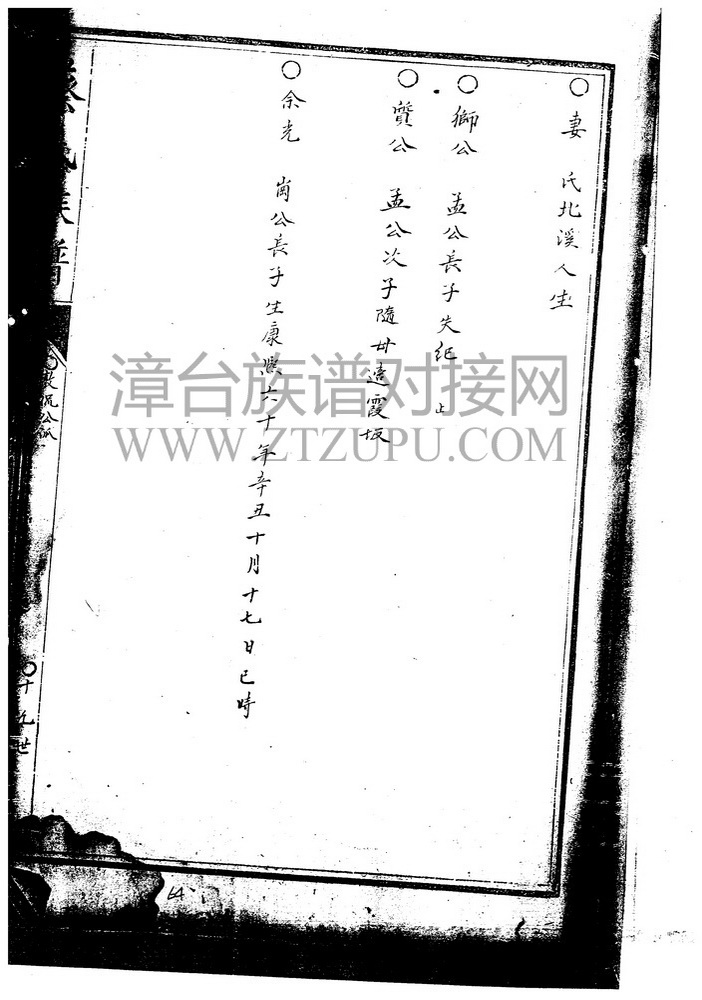 〇妻 氏北溪人生
〇獅公 孟公長子失紀 止
〇質公 孟公次子隨母遠霞坂
〇余光 崗公長子生康熙六十年辛丑十月十七日巳時
氏族譜
公派
〇十九世
漳台族谱对接网
WWW.ZTZUPU.COM